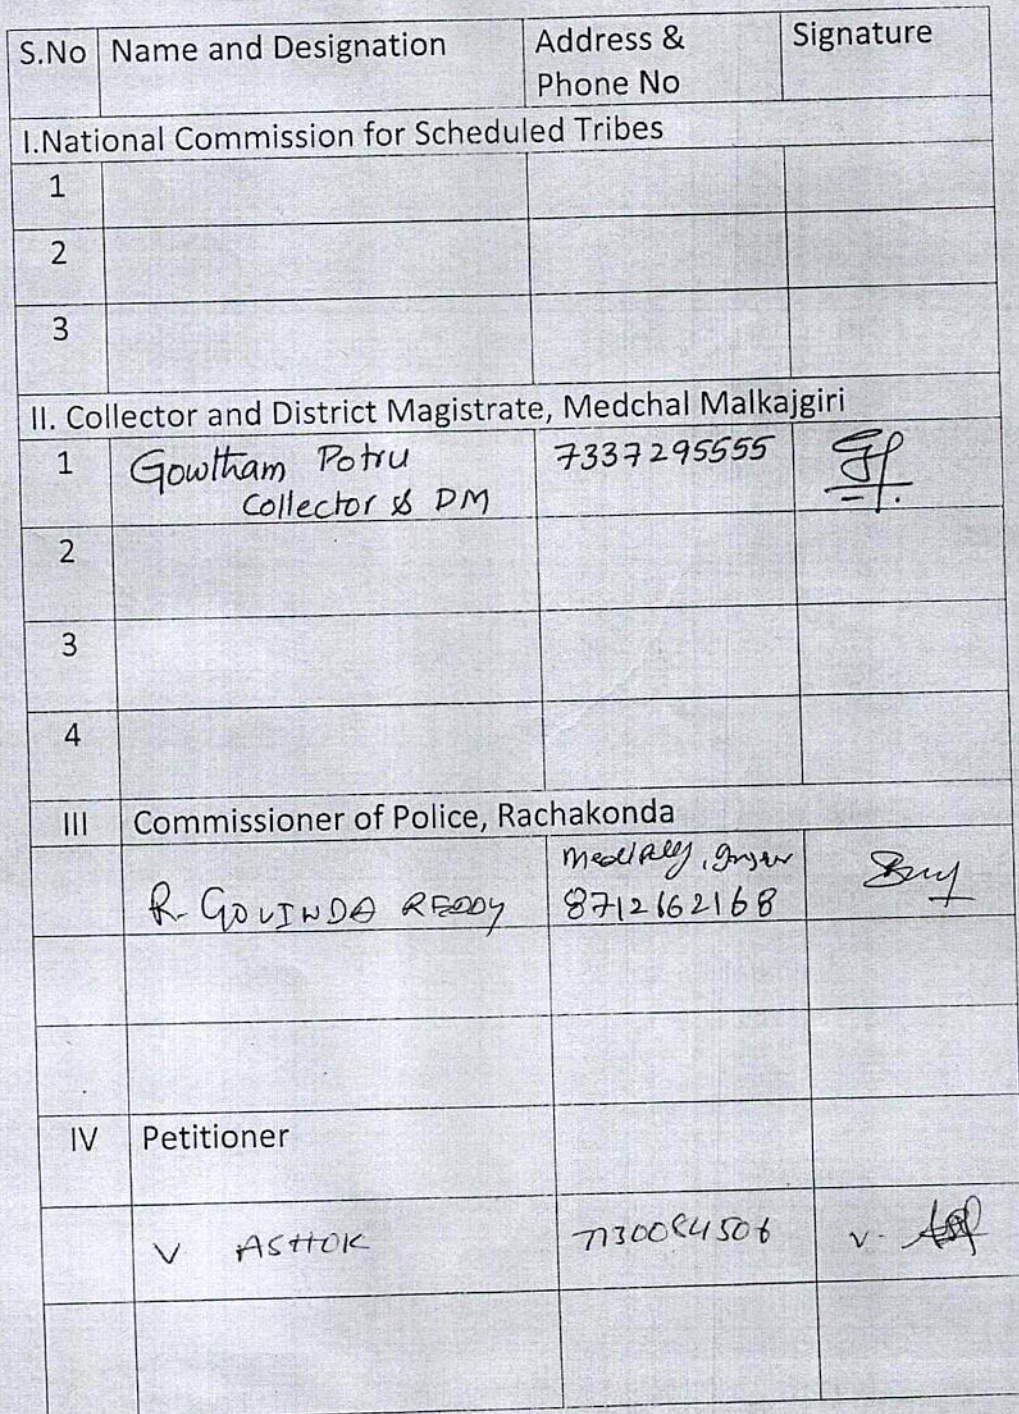 S.No Name and Designation Address & Signature
Phone No
I.National Commission for Scheduled Tribes
1
2
3
II. Collector and District Magistrate, Medchal Malkajgiri
1 Gowtham Potru 7337295555
Collector & DM
2
3
4
III Commissioner of Police, Rachakonda
R. GOVINDA REDDY 8712662168
IV Petitioner
V ASHOK V.